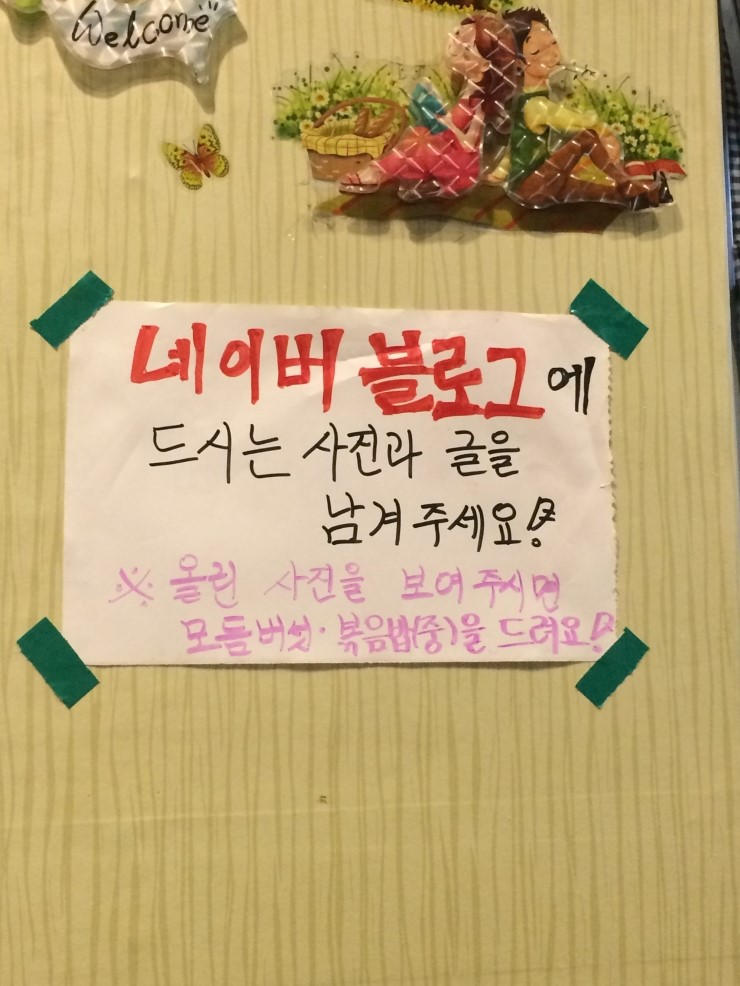 Welcome
네이버 블로그에
드시는 사진과 글을
남겨주세요!
※ 올린 사진을 보여주시면
모듬버섯·볶음밥(중)을 드려요!